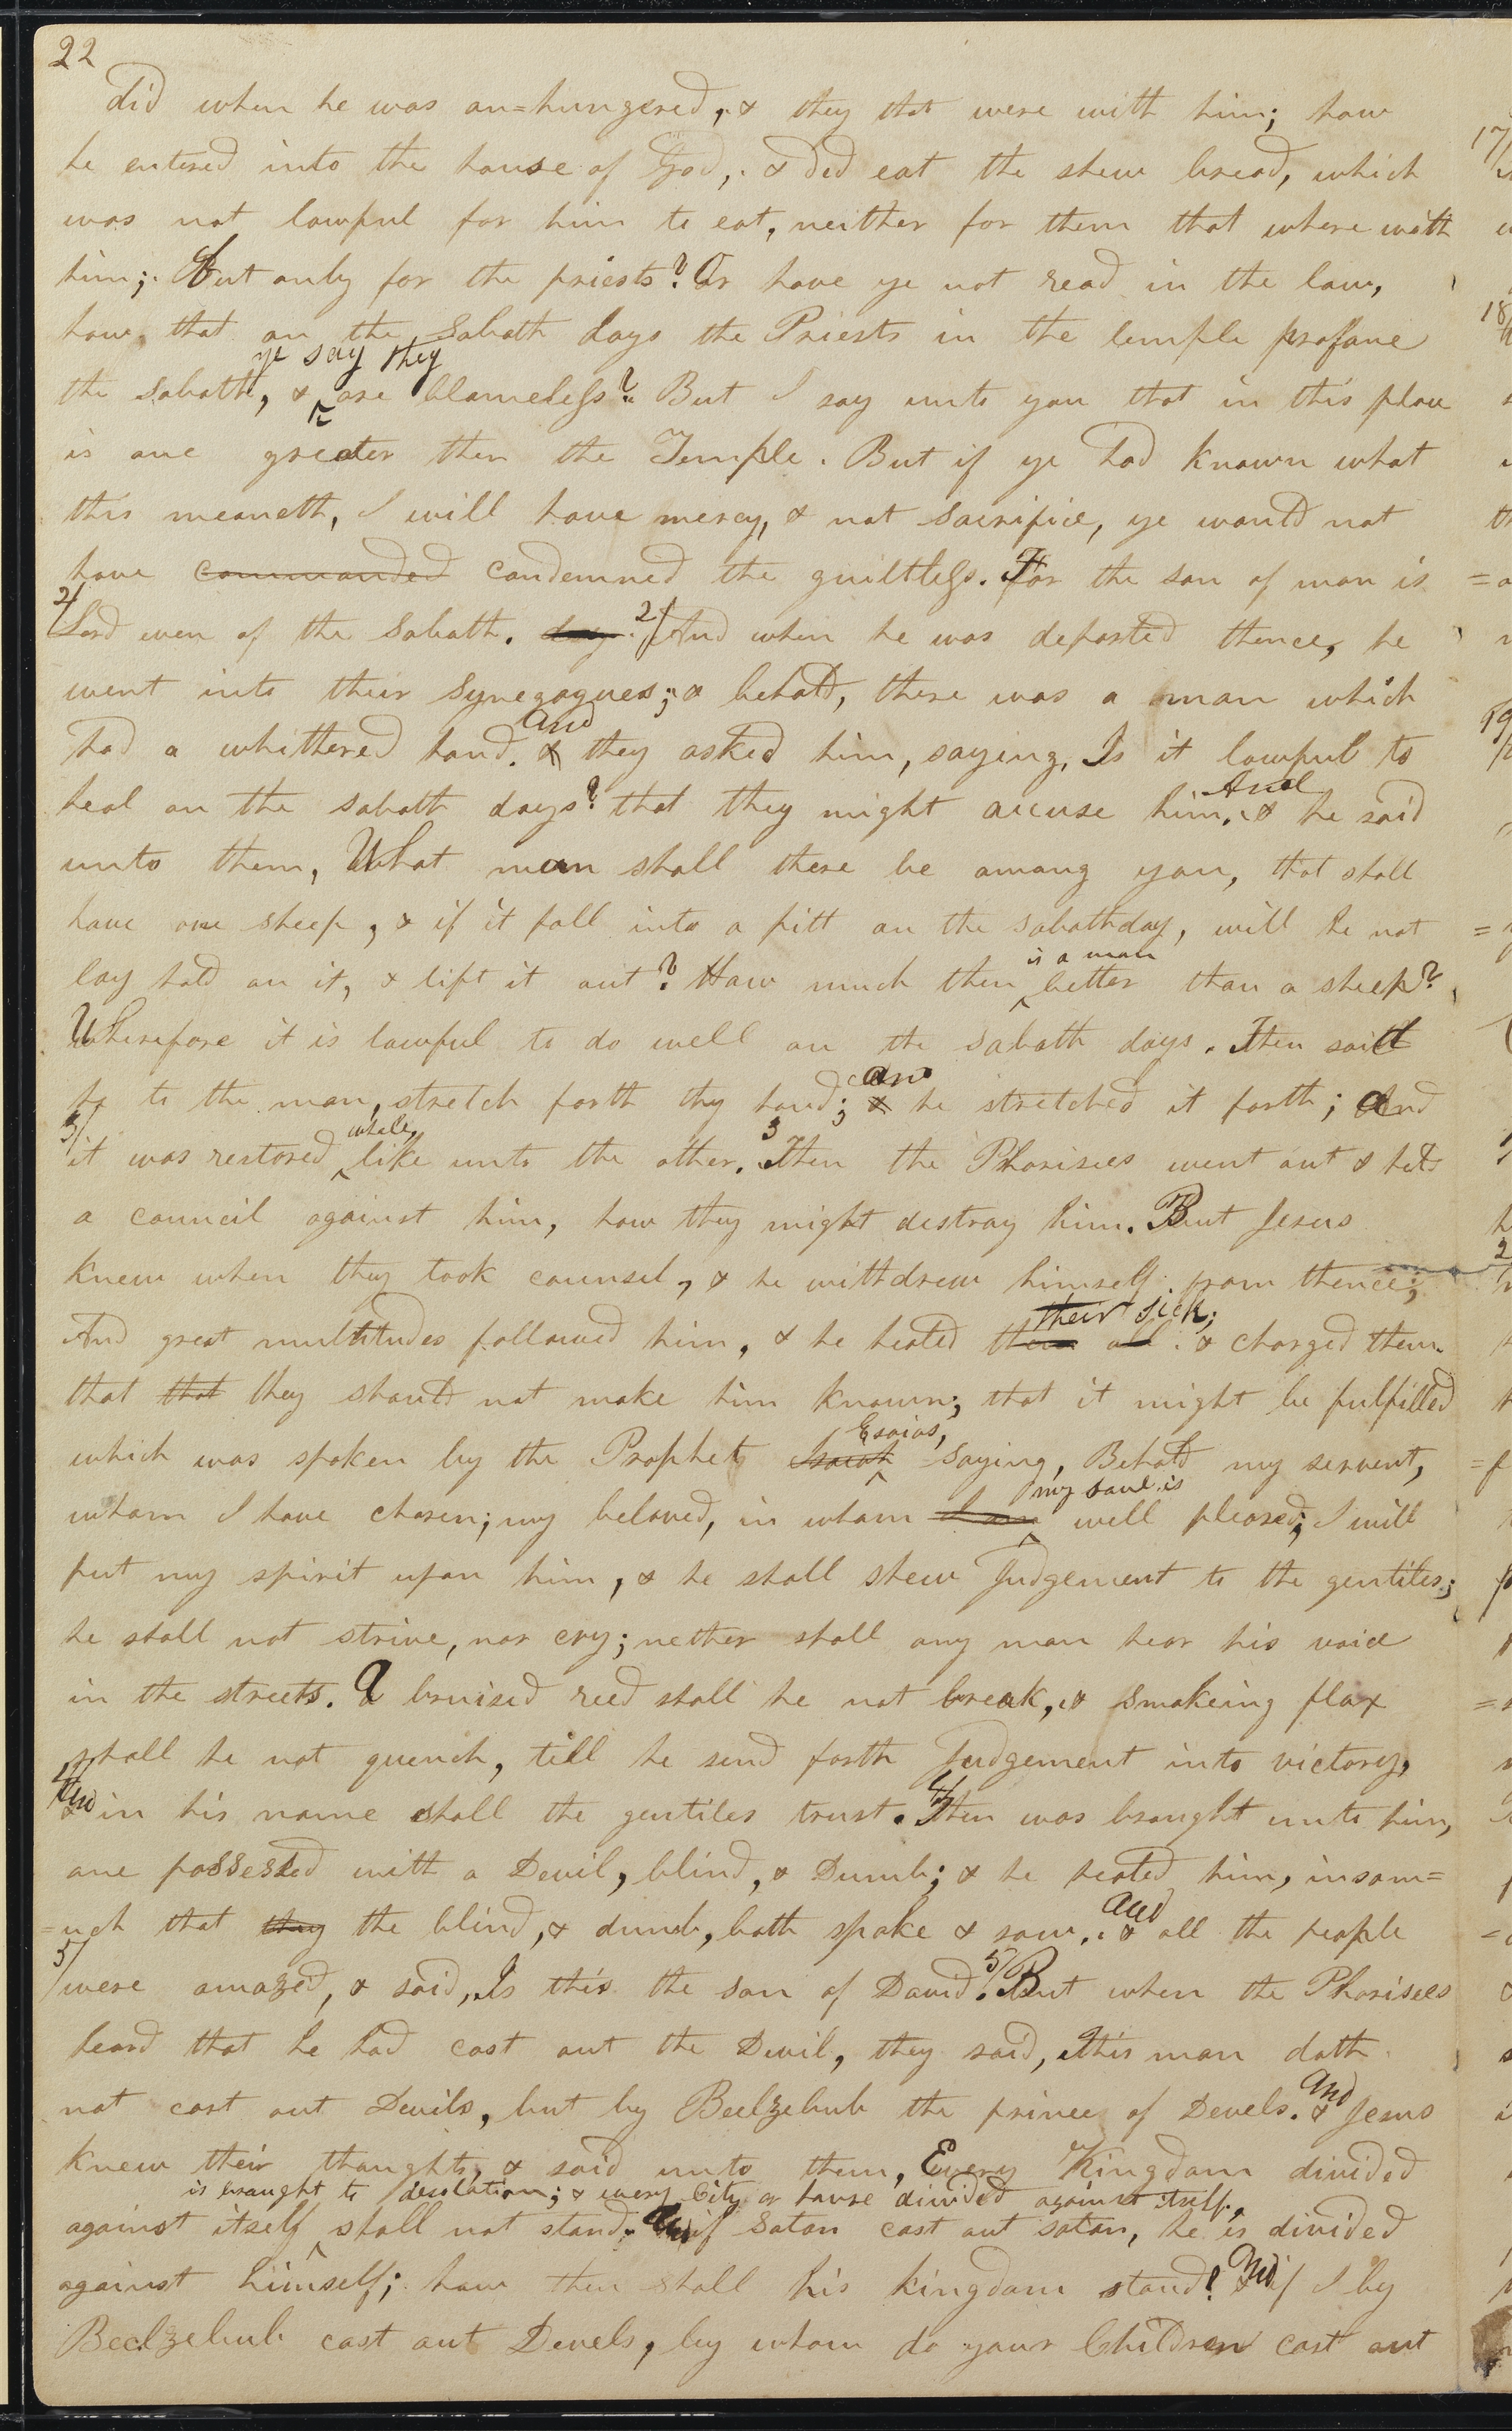 22
did when he was an=hungered, & they that were with him; how
he entered into the house of God, & did eat the shew bread, which
was not lawful for him to eat, neither for them that where with
him; But only for the priests? Or have ye not read in the law,
how, that on the Sabath days the Priests in the temple profane
ye say they
the sabath, & are blameless? But I say unto you that in this place
is one greater then the Temple. But if ye had known what
this meaneth, I will have mercy, & not sacrifice, ye would not
have commanded condemned the guiltless. For the son of man is
2/
Lord even of the Sabath. day 2/ And when he was departed thence, he
went into their Synegogues; & behold, there was a man which
And
had a whithered hand. & they asked him, saying, Is it lawful to
And
heal on the sabath days? that they might accuse him. & he said
unto them, What man shall there be among you, that shall
have one sheep, & if it fall into a pitt on the sabathday, will he not
is a man
lay hold on it, & lift it out? How much then better than a sheep?
Wherefore it is lawful to do well on the sabath days. Then said
and
he to the man, stretch forth thy hand; & he stretched it forth; And
3/ whole, 3
it was restored like unto the other. Then the Pharisees went out & held
a council against him, how they might destroy him. But Jesus
knew when they took counsel, & he withdrew himself from thence;
their sick;
And great multitudes followed him, & he healed them all. & charged them
that that they should not make him known; that it might be fulfilled
Esaias,
which was spoken by the Prophet Isaiah saying, Behold my servent,
my soul is
whom I have chosen; my beloved, in whom I am well pleased; I will
put my spirit upon him, & he shall shew Judgement to the gentiles;
he shall not strive, nor cry; nether shall any man hear his voice
in the streets. A bruised reed shall he not break, & smokeing flax
shall he not quench, till he send forth Judgement into victory,
4/ And
& in his name shall the gentiles trust. 4/ Then was braught unto him,
one possessed with a Devil, blind, & Dumb; & he healed him, insom=
and
=uch that they the blind, & dumb, both spake & saw. & all the people
5/
were amazed, & said, Is this the son of David? 5/ But when the Pharisees
heard that he had cast out the Devil, they said, this man doth
And
not cast out Devils, but by Beelzebub the prince of Devels. & Jesus
knew their thoughts, & said unto them, Every Kingdom divided
is braught to desolation; & every City or house divided against itself,
against itself shall not stand. And if Satan cast out satan, he is divided
And
against himself; how then shall his kingdom stand? & if I by
Beelzebub cast out Devels, by whom do your Children cast out
17/
18/
19/
2